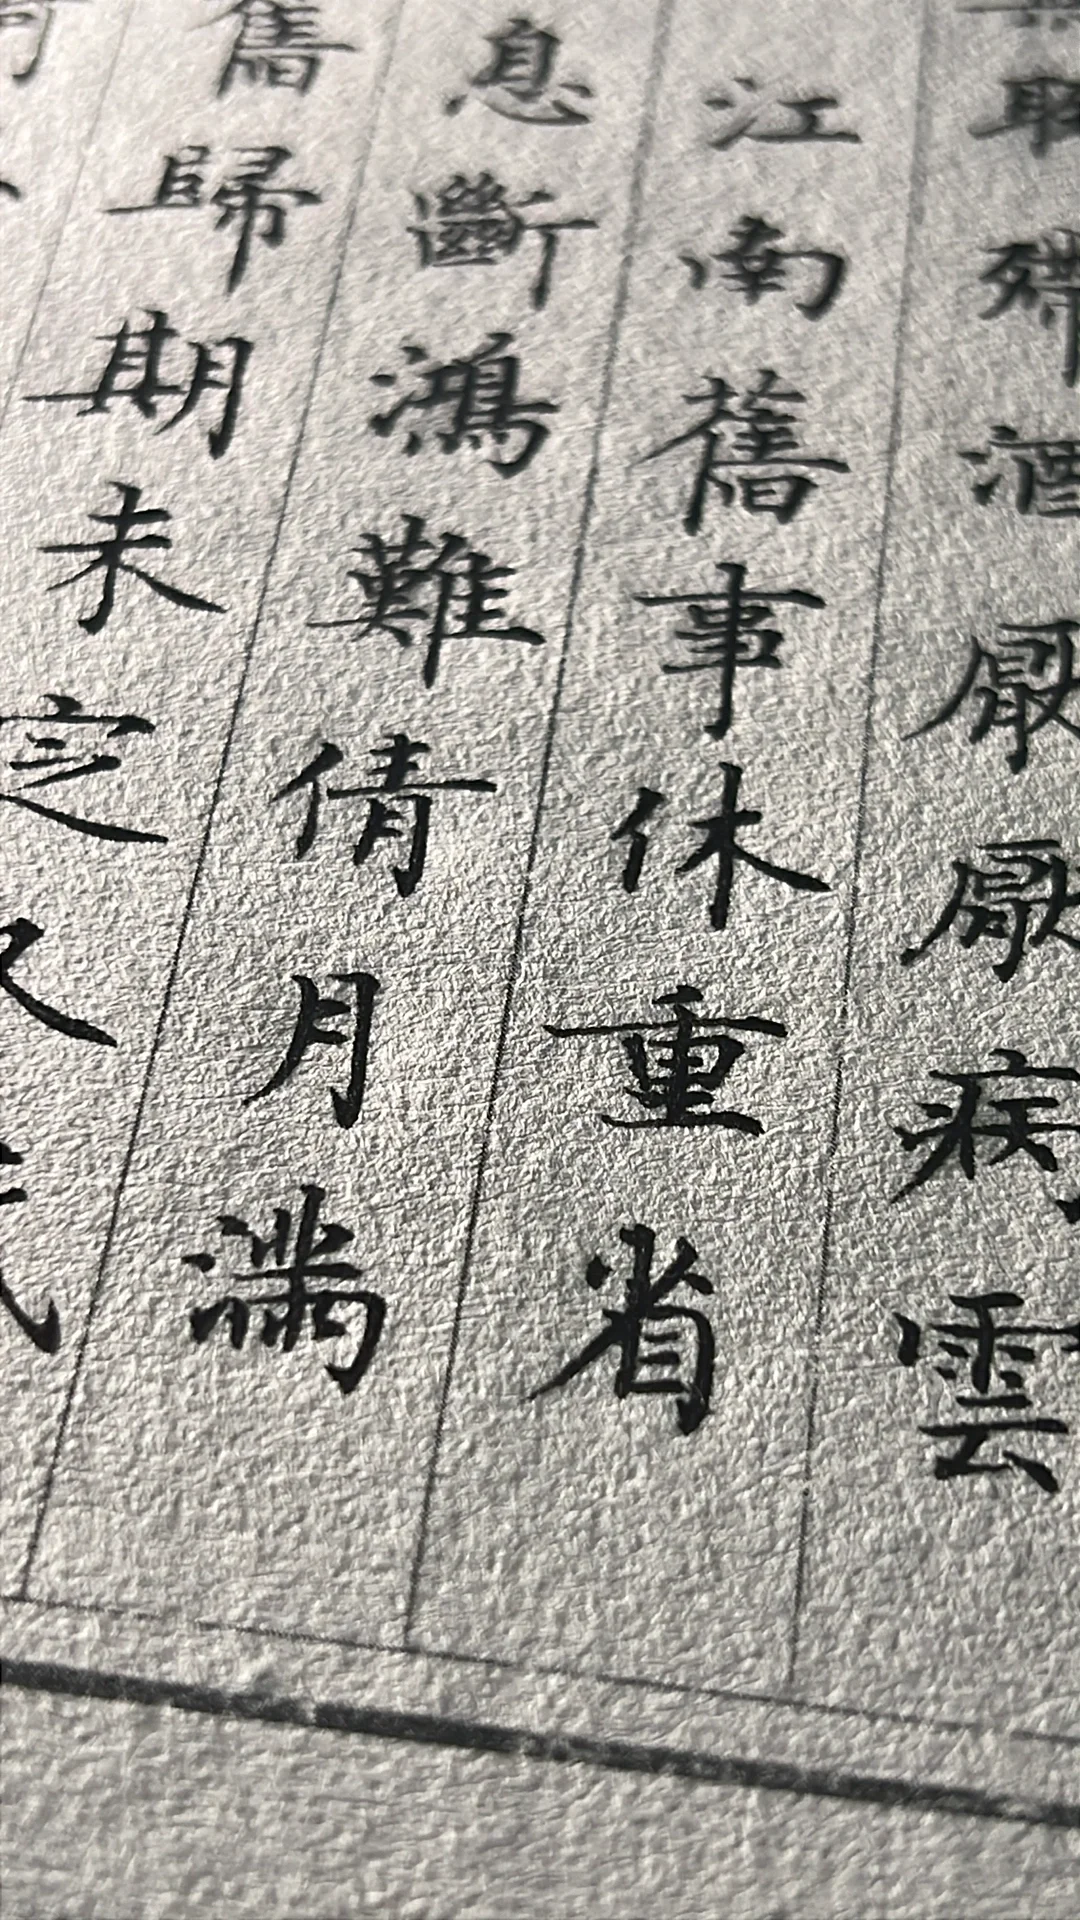 聊殢酒厭厭病雲
江南舊事休重省
息斷鴻難倩月滿
舊歸期未定